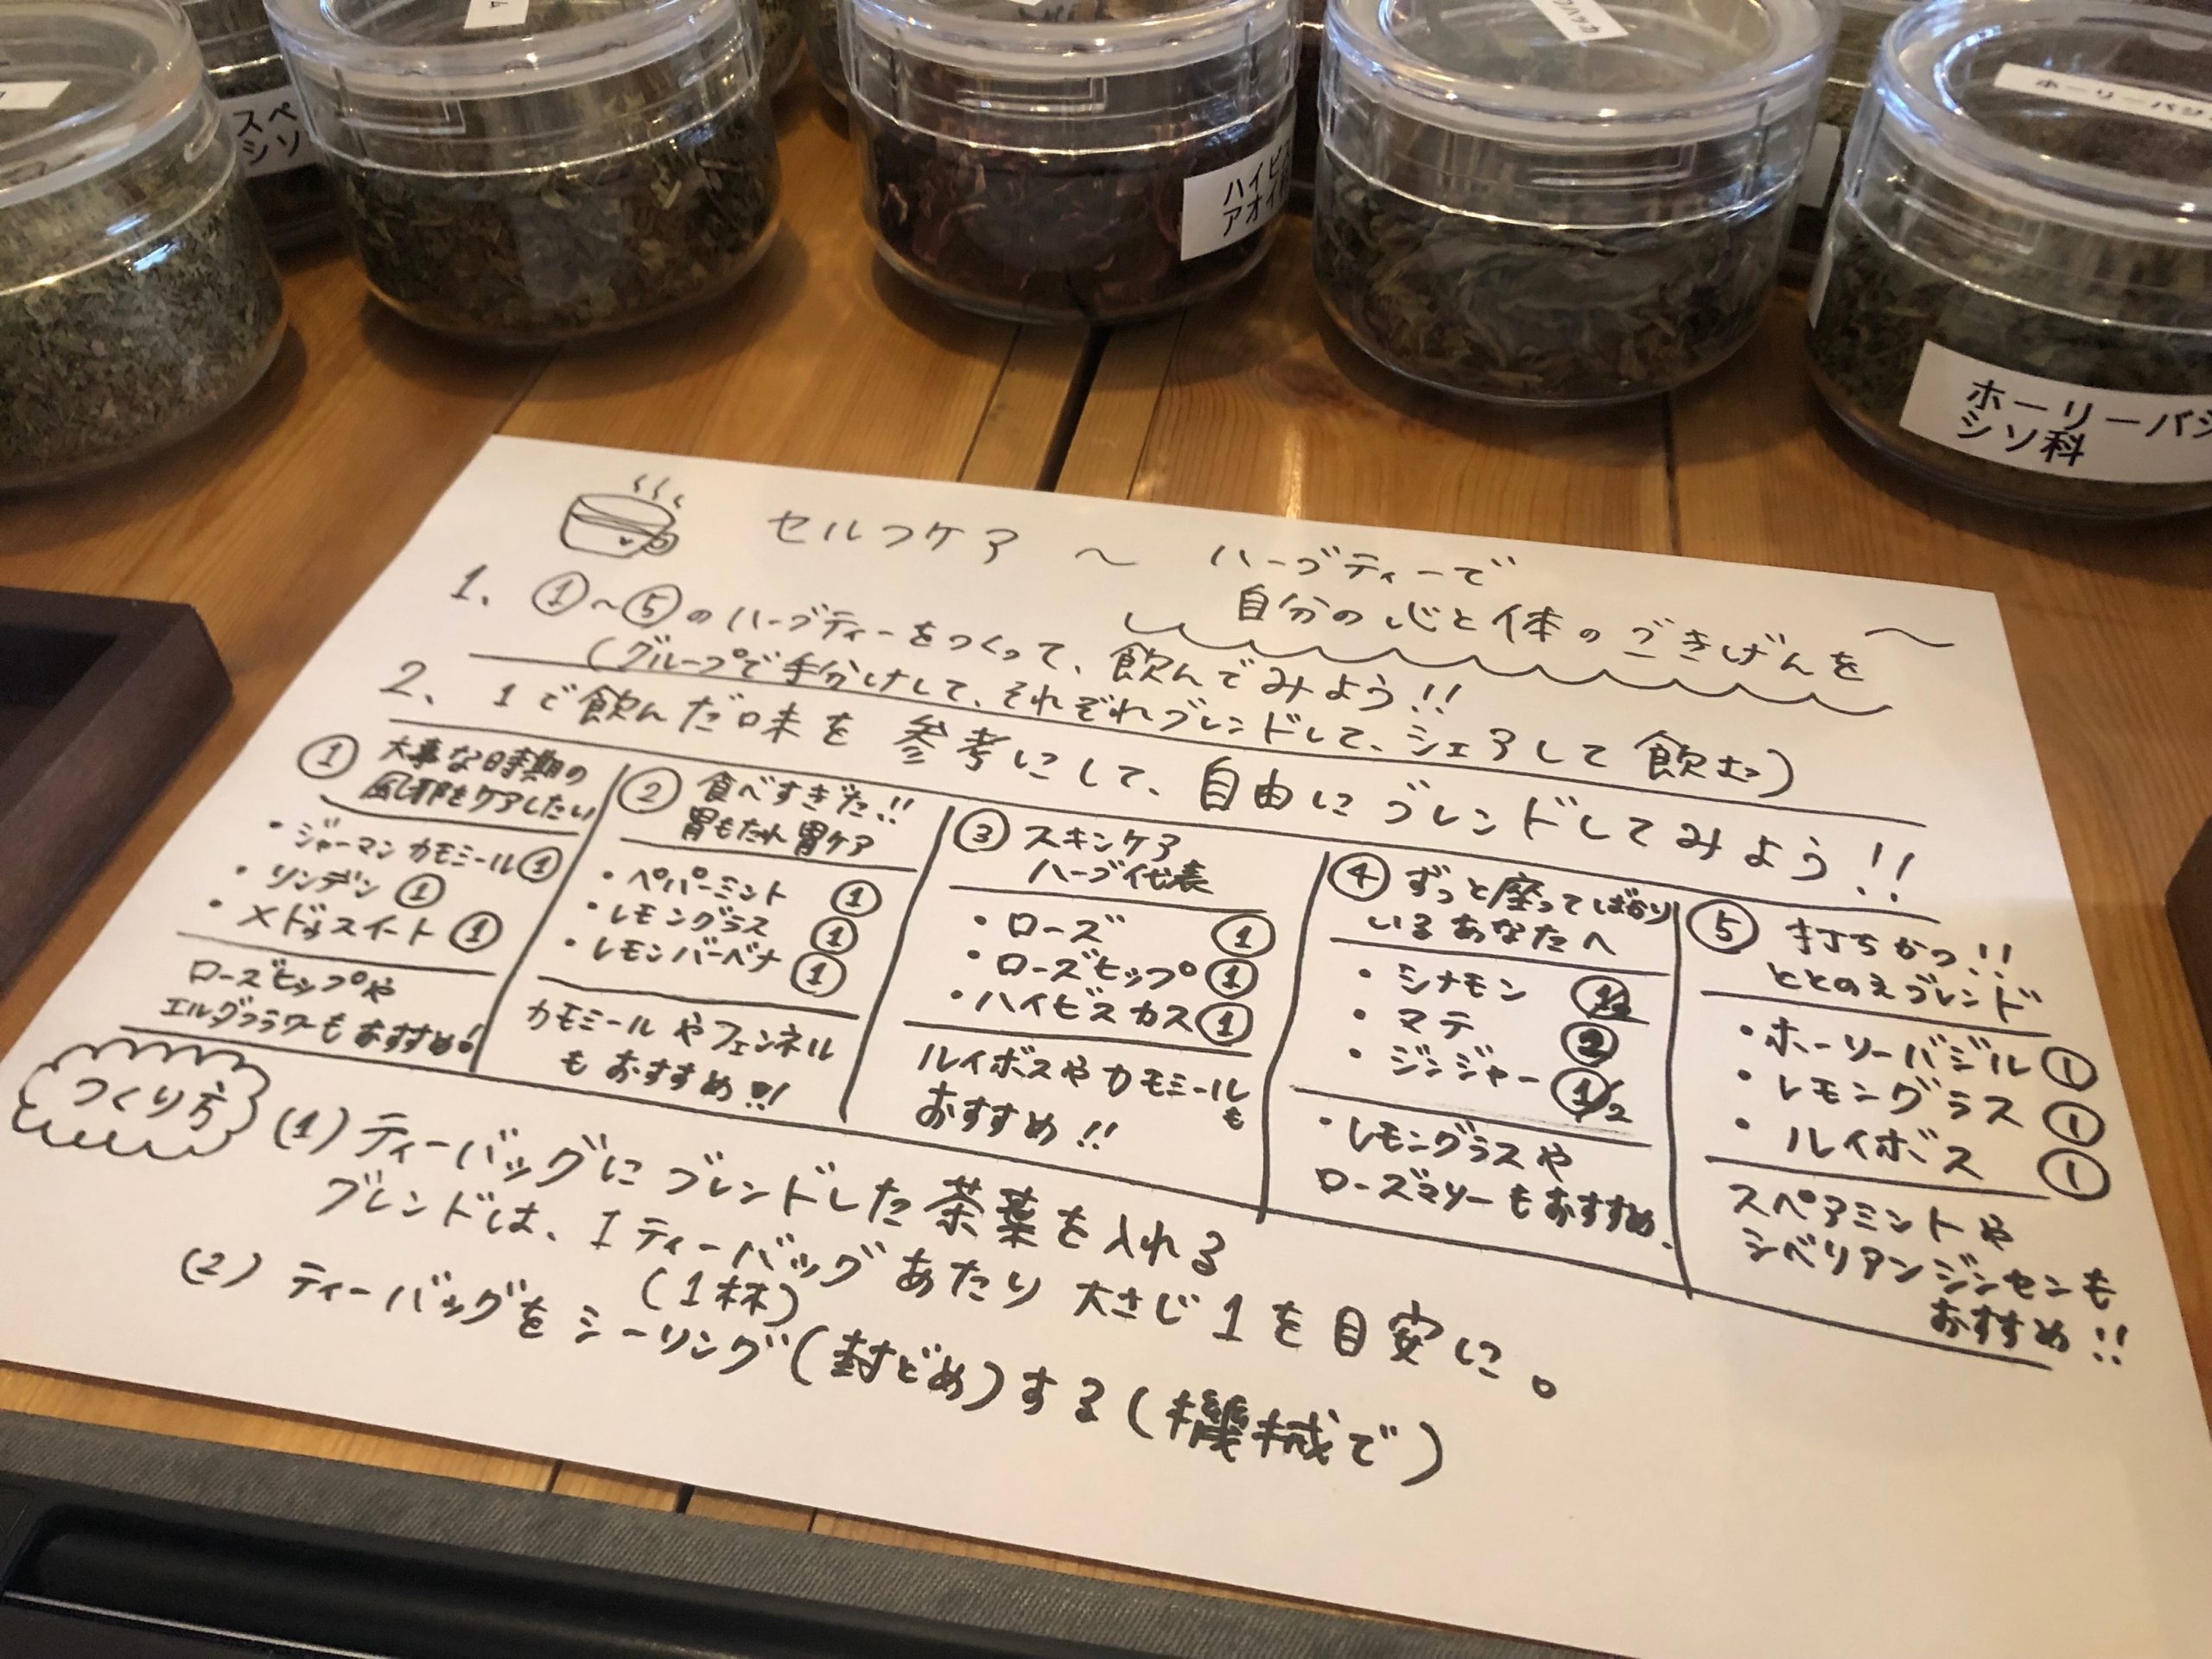 スペ
シソ
ハイビ
アオイ
ホーリーバジ
ホーリーバジ
シソ科
セルフケア 〜 ハーブティーで
自分の心と体のごきげんを 〜
1. ①〜⑤のハーブティーをつくって、飲んでみよう!!
(グループで手分けして、それぞれブレンドして、シェアして飲む)
2. 1で飲んだ味を参考にして、自由にブレンドしてみよう!!
① 大事な時期の
風邪をケアしたい
・ジャーマンカモミール①
・リンデン ①
・メドゥスイート ①
ローズヒップや
エルダフラワーもおすすめ!
② 食べすぎた!!
胃もたれ胃ケア
・ペパーミント ①
・レモングラス ①
・レモンバーベナ ①
カモミールやフェンネル
もおすすめ!!
③ スキンケア
ハーブ代表
・ローズ ①
・ローズヒップ ①
・ハイビスカス ①
ルイボスやカモミールも
おすすめ!!
④ ずっと座ってばかり
いるあなたへ
・シナモン 1/2
・マテ ②
・ジンジャー 1/2
・レモングラスや
ローズマリーもおすすめ.
⑤ 打ちかつ!!
ととのえブレンド
・ホーリーバジル ①
・レモングラス ①
・ルイボス ①
スペアミントや
シベリアンジンセンも
おすすめ!!
つくり方
(1) ティーバッグにブレンドした茶葉を入れる
ブレンドは、1ティーバッグあたり大さじ1を目安に。
(1杯)
(2) ティーバッグをシーリング(封どめ)する(機械で)